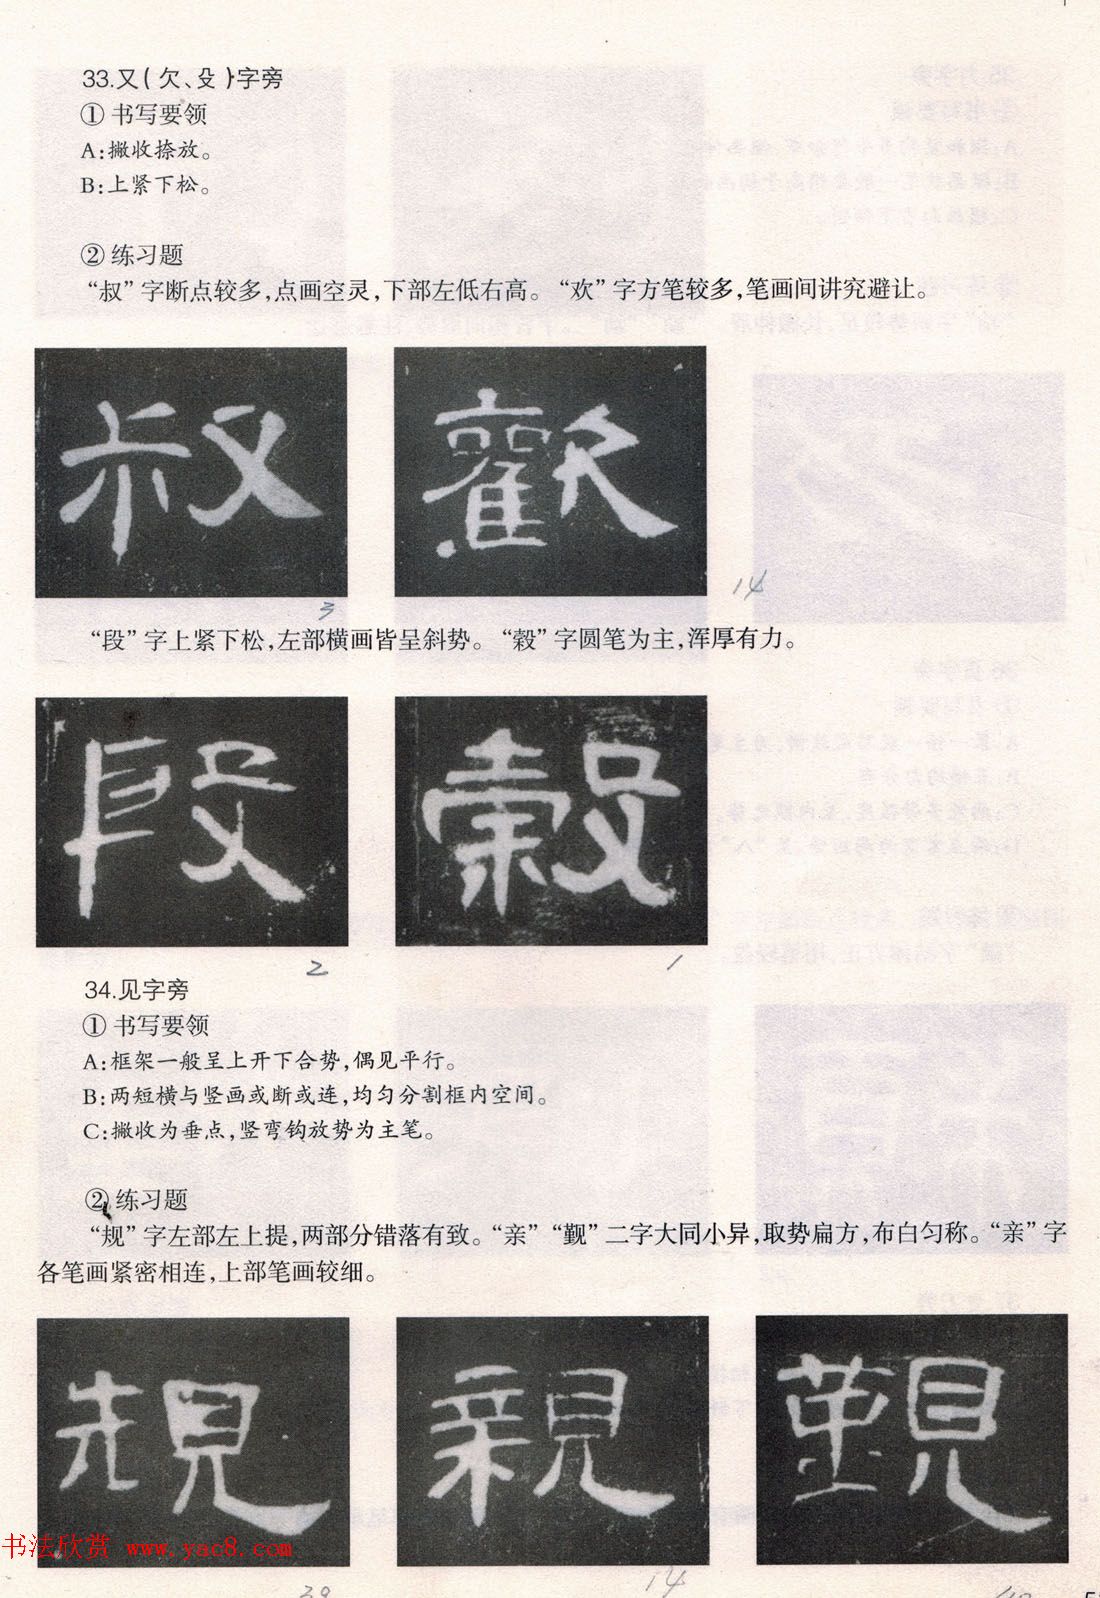 33.又(欠、殳)字旁
① 书写要领
A:撇收捺放。
B:上紧下松。
② 练习题
“叔”字断点较多,点画空灵,下部左低右高。“欢”字方笔较多,笔画间讲究避让。
叔 歡
3 14
“段”字上紧下松,左部横画皆呈斜势。“榖”字圆笔为主,浑厚有力。
段 榖
2 1
34.见字旁
① 书写要领
A:框架一般呈上开下合势,偶见平行。
B:两短横与竖画或断或连,均匀分割框内空间。
C:撇收为垂点,竖弯钩放势为主笔。
② 练习题
“规”字左部左上提,两部分错落有致。“亲”“觐”二字大同小异,取势扁方,布白匀称。“亲”字
各笔画紧密相连,上部笔画较细。
規 親 覲
书法欣赏 www.yac8.com
14